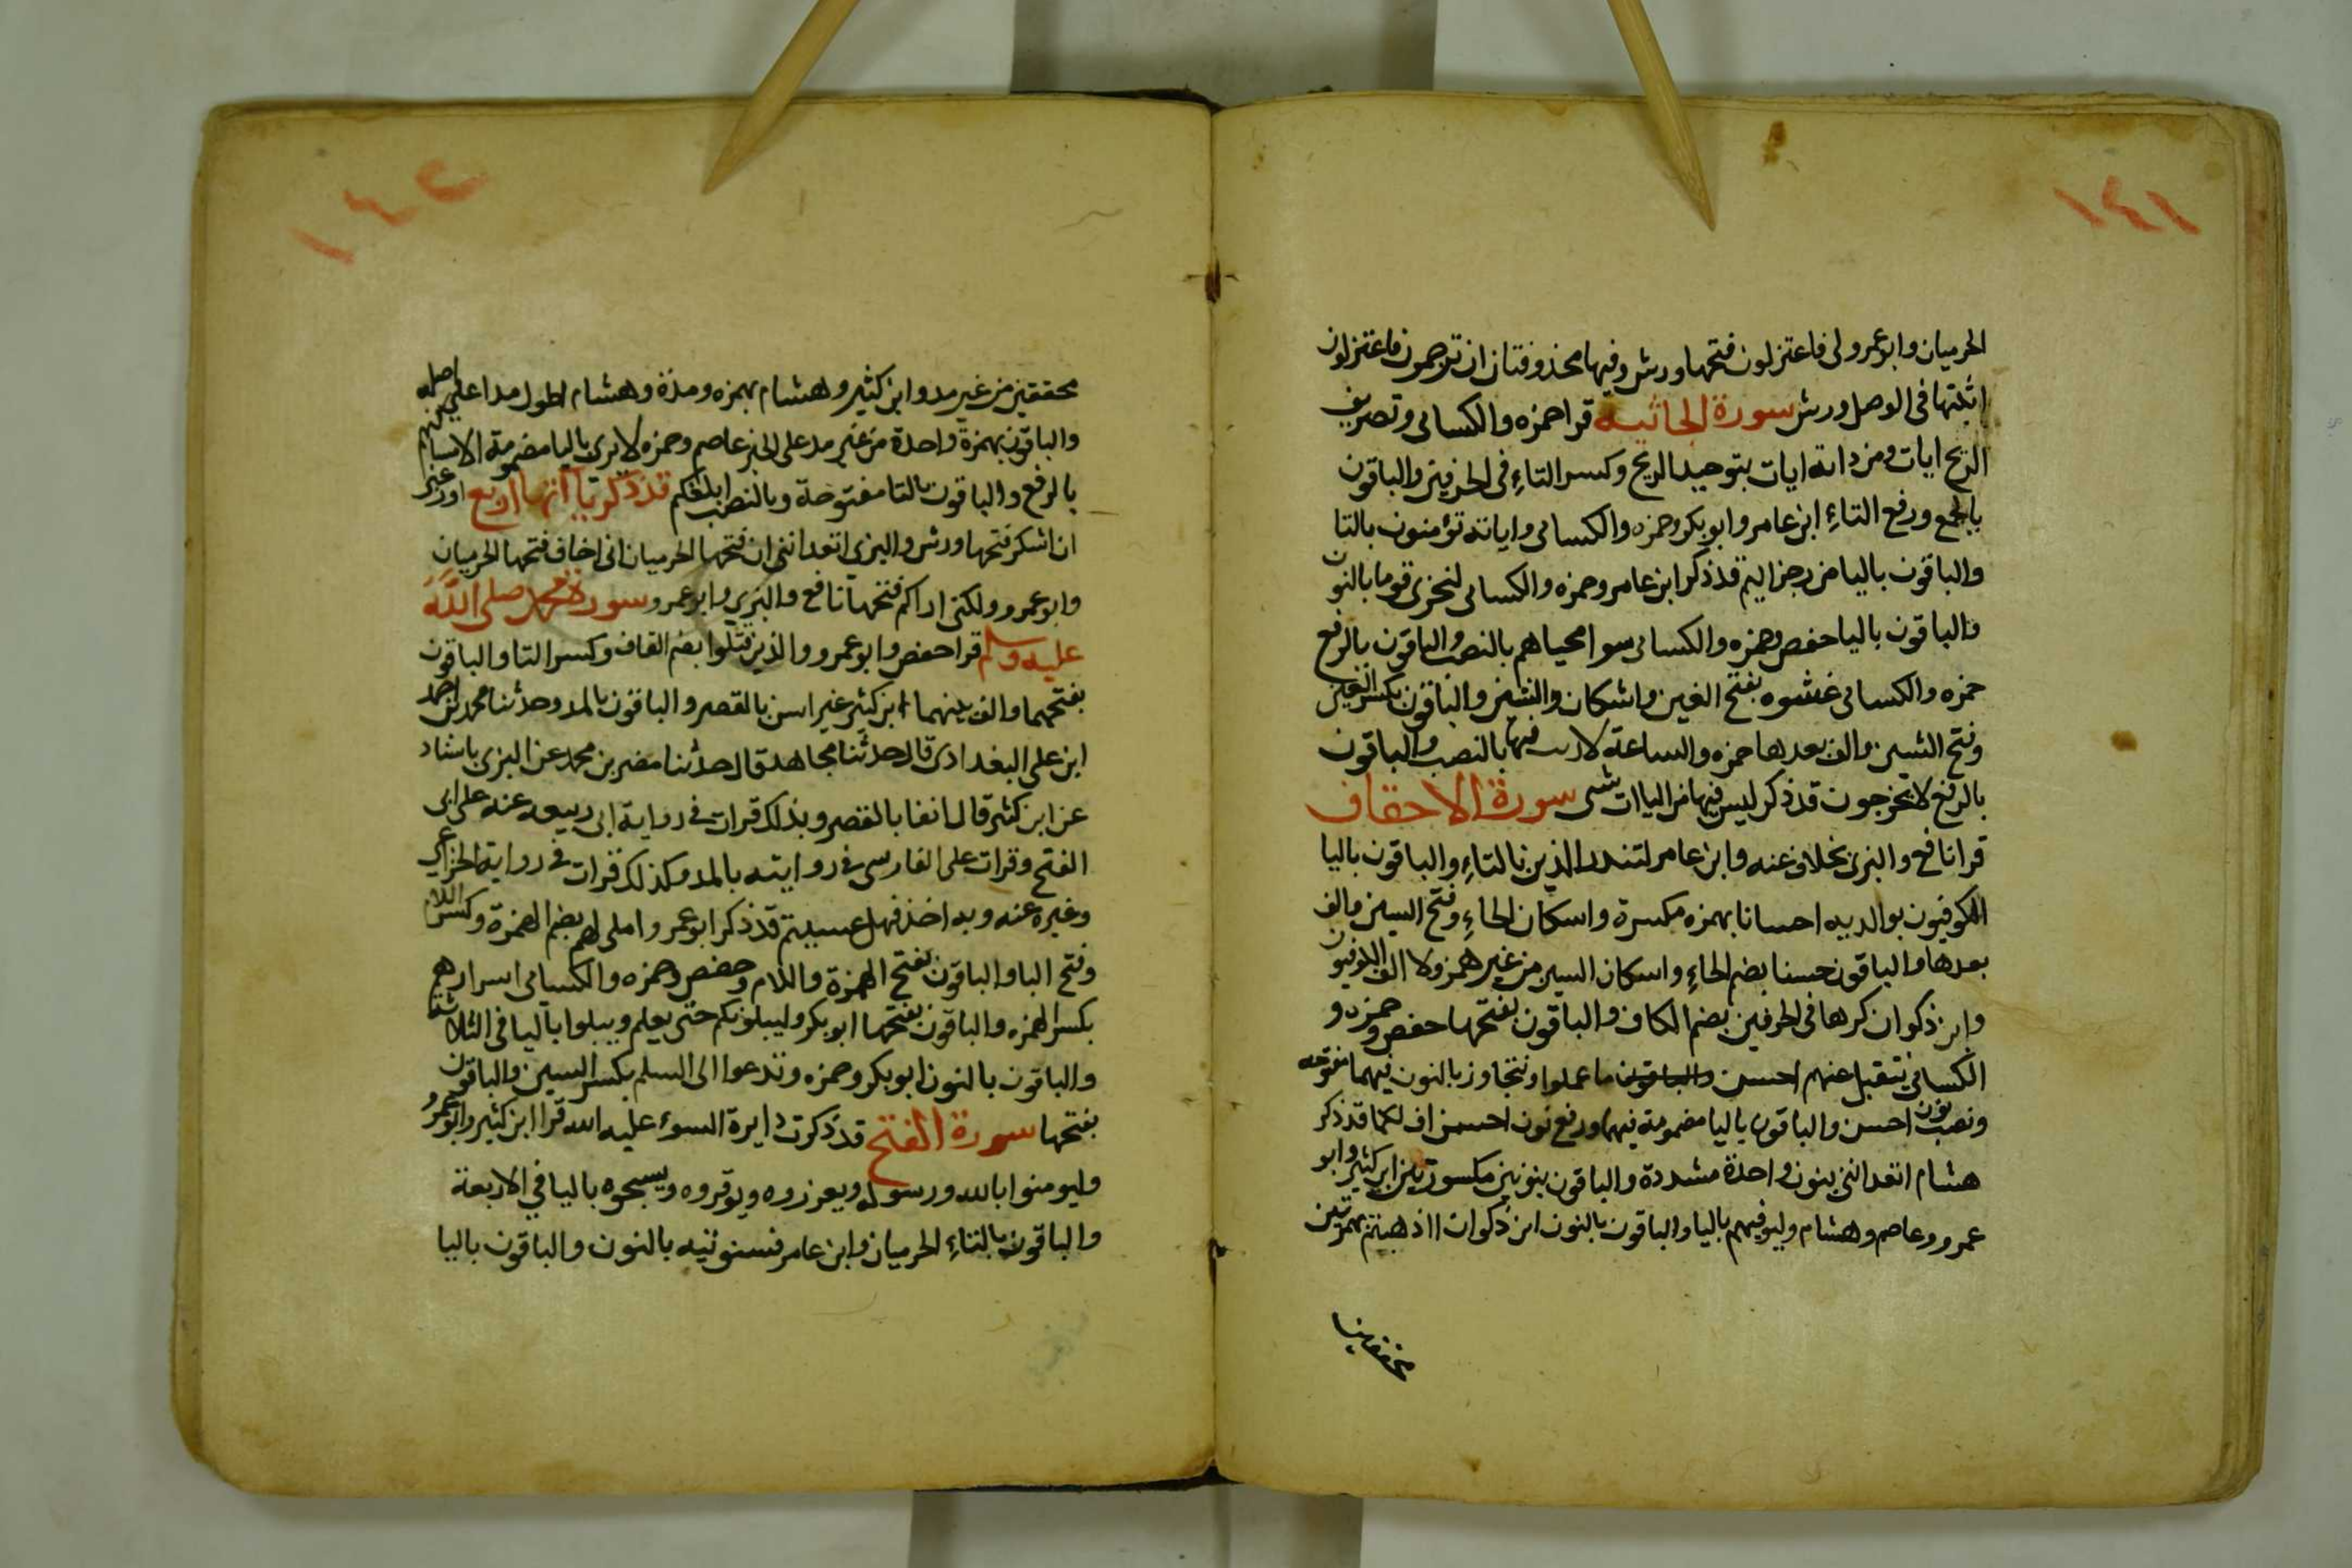 ١٤١
الحرميان وابو عمرو لى فاعتزلون فتحها ورش وفيها محذوفتان ان ترجمون فاعتزلون
اثبتها فى الوصل ورش سورة الجاثيه قرا حمزه والكسائى وتصريف
الريح ايات ومن دابة ايات بتوحيد الريح وكسر التاءِ فى الحرفين والباقون
بالجمع ورفع التاءِ ابن عامر وابو بكر وحمزه والكسائى واياته تؤمنون بالتا
والباقون باليا من رجز اليم قد ذكر ابن عامر وحمزه والكسائى لنجزى قوما بالنون
والباقون باليا حفص وحمزه والكسائى سوا محياهم بالنصب والباقون بالرفع
حمزه والكسائى غشوه بفتح الغين واسكان والشين والباقون بكسر الغين
وفتح الشين والف بعدها حمزه والساعة لا ريب فيها بالنصب والباقون
بالرفع لا يخرجون قد ذكر ليس فيها من الياات شى سورة الاحقاف
قرا نافع والبزى بخلاف عنه وابن عامر لتنذر الذين بالتاءِ والباقون باليا
الكوفيون بوالديه احسانا بهمزه مكسرة واسكان الحاءِ وفتح السين والف
بعدها والباقون حسنا بضم الحاءِ واسكان السين من غير همز ولا الف الكوفيون
وابن ذكوان كرها فى الحرفين بضم الكاف والباقون بفتحها حفص وحمزه و
الكسائى نتقبل عنهم احسن والباقون ما عملوا ونتجاوز بالنون فيهما مفتوحه
ونصب نون احسن والباقون باليا مضمومة فيهما ورفع نون احسن اف لكما قد ذكر
هشام اتعداننى بنون واحدة مشددة والباقون بنونين مكسورتين ابن كثير وابو
عمرو وعاصم وهشام وليوفيهم باليا والباقون بالنون ابن ذكوان ااذهبتم بهمزتين
١٤٢
محققتين من غير مد وابن كثير وهشام بهمزه ومدة وهشام اطول مدا على اصله
والباقون بهمزة واحدة من غير مد على الخبر عاصم وحمزه لا يرى باليا مضمومة الا مساكنهم
بالرفع والباقون بالتا مفتوحة وبالنصب ابلغكم قد ذكر ياآتها اربع اوزعنى
ان اشكر فتحها ورش والبزى اتعداننى ان فتحها الحرميان انى اخاف فتحها الحرميان
وابو عمرو ولكنى اراكم فتحها نافع والبزي وابو عمرو سورة محمد صلى الله
عليه وسلم قرا حفص وابو عمرو والذين قتلوا بضم القاف وكسر التا والباقون
بفتحهما والف بينهما ابن كثير غير اسن بالقصر والباقون بالمد وحدثنا محمد بن احمد
ابن على البغدادى قال حدثنا مجاهد قال حدثنا مضر بن محمد عن البزى باسناد
عن ابن كثير قال انفا بالقصر وبذلك قرات فى رواية ابى ربيعه عنه على ابى
الفتح وقرات على الفارسى فى روايته بالمد وكذلك قرات فى رواية الخزاعي
وغيره عنه وبه اخذ فهل عسيتم قد ذكر ابو عمرو واملى لهم بضم الهمزة وكسر اللام
وفتح اليا والباقون بفتح الهمزة واللام وحفص وحمزه والكسائى اسرارهم
بكسر الهمزه والباقون بفتحها ابو بكر وليبلونكم حتى يعلم ويبلوا باليا فى الثلاثة
والباقون بالنون ابو بكر وحمزه وتدعوا الى السلم بكسر السين والباقون
بفتحها سورة الفتح قد ذكرت دايرة السوء عليه الله قرا ابن كثير وابو عمرو
وليومنوا بالله ورسوله ويعزروه ويوقروه ويسبحوه باليا في الاربعة
والباقون بالتاءِ الحرميان وابن عامر فسنوتيه بالنون والباقون باليا